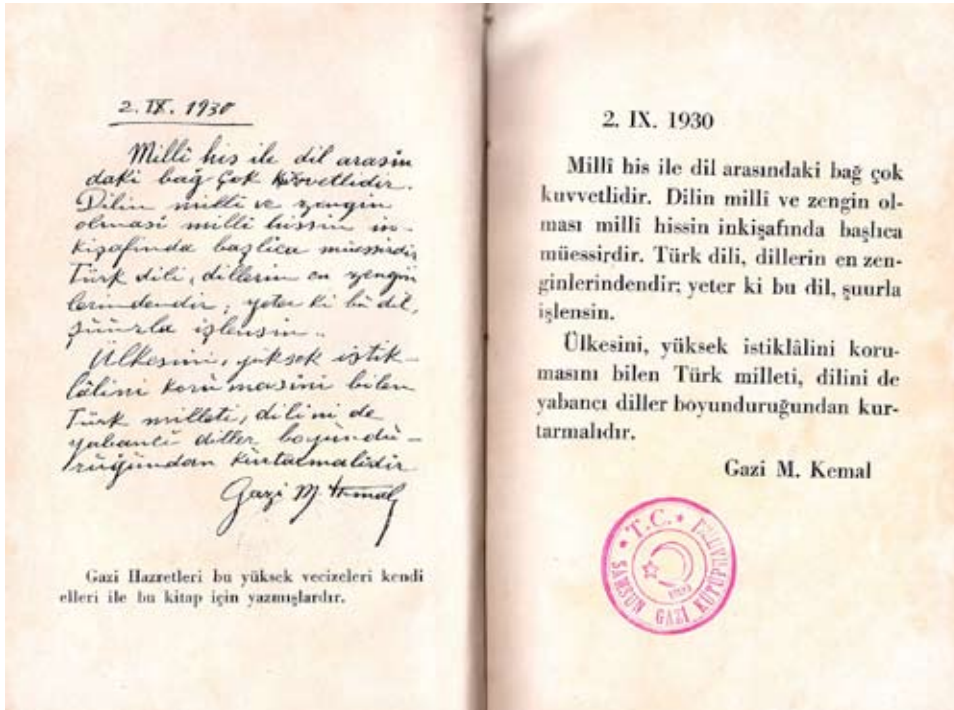 2. IX. 1930
Millî his ile dil arasın
daki bağ çok kuvvetlidir.
Dilin millî ve zengin
olması millî hissin in-
kişafında başlıca müessirdir.
Türk dili, dillerin en zengin
lerindendir; yeter ki bu dil,
şuurla işlensin..
Ülkesini, yüksek istik-
lâlini korumasını bilen
Türk milleti, dilini de
yabancı diller boyundu-
ruğundan kurtarmalıdır
Gazi M Kemal
Gazi Hazretleri bu yüksek vecizeleri kendi
elleri ile bu kitap için yazmışlardır.
2. IX. 1930
Millî his ile dil arasındaki bağ çok
kuvvetlidir. Dilin millî ve zengin ol-
ması millî hissin inkişafında başlıca
müessirdir. Türk dili, dillerin en zen-
ginlerindendir; yeter ki bu dil, şuurla
işlensin.
Ülkesini, yüksek istiklâlini koru-
masını bilen Türk milleti, dilini de
yabancı diller boyunduruğundan kur-
tarmalıdır.
Gazi M. Kemal
T.C.
SAMSUN GAZİ KÜTÜPHANESİ